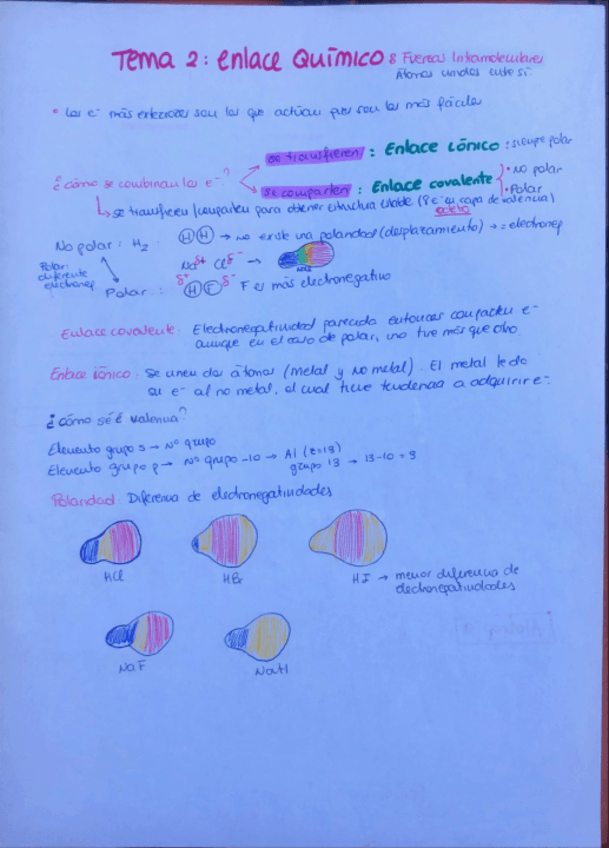 Tema 2: Enlace Químico & Fuerzas Intramoleculares
Átomos unidos entre sí
• Los e⁻ más exteriores son los que actúan pues son los más fáciles
¿Cómo se combinan los e⁻?
se transfieren : Enlace iónico : siempre polar
se comparten : Enlace covalente • No polar
• Polar
↳ se transfieren/comparten para obtener estructura estable (8 e⁻ en capa de valencia)
octeto
No polar : H₂ : H H → no existe una polaridad (desplazamiento) → = electroneg
Polar: diferente electroneg
Na δ+ Cl δ- →
Polar : δ+ H F δ- F es más electronegativo
Enlace covalente: Electronegatividad parecida entonces comparten e⁻
aunque en el caso de polar, uno tire más que otro.
Enlace iónico: Se unen dos átomos (metal y no metal). El metal le da
su e⁻ al no metal, el cual tiene tendencia a adquirir e⁻.
¿Cómo sé é valencia?
Elemento grupo s → Nº grupo
Elemento grupo p → Nº grupo -10 → Al (z=13)
grupo 13 → 13-10 = 3
Polaridad: Diferencia de electronegatividades
HCl
HBr
HI → menor diferencia de
electronegatividades
NaF
NaH